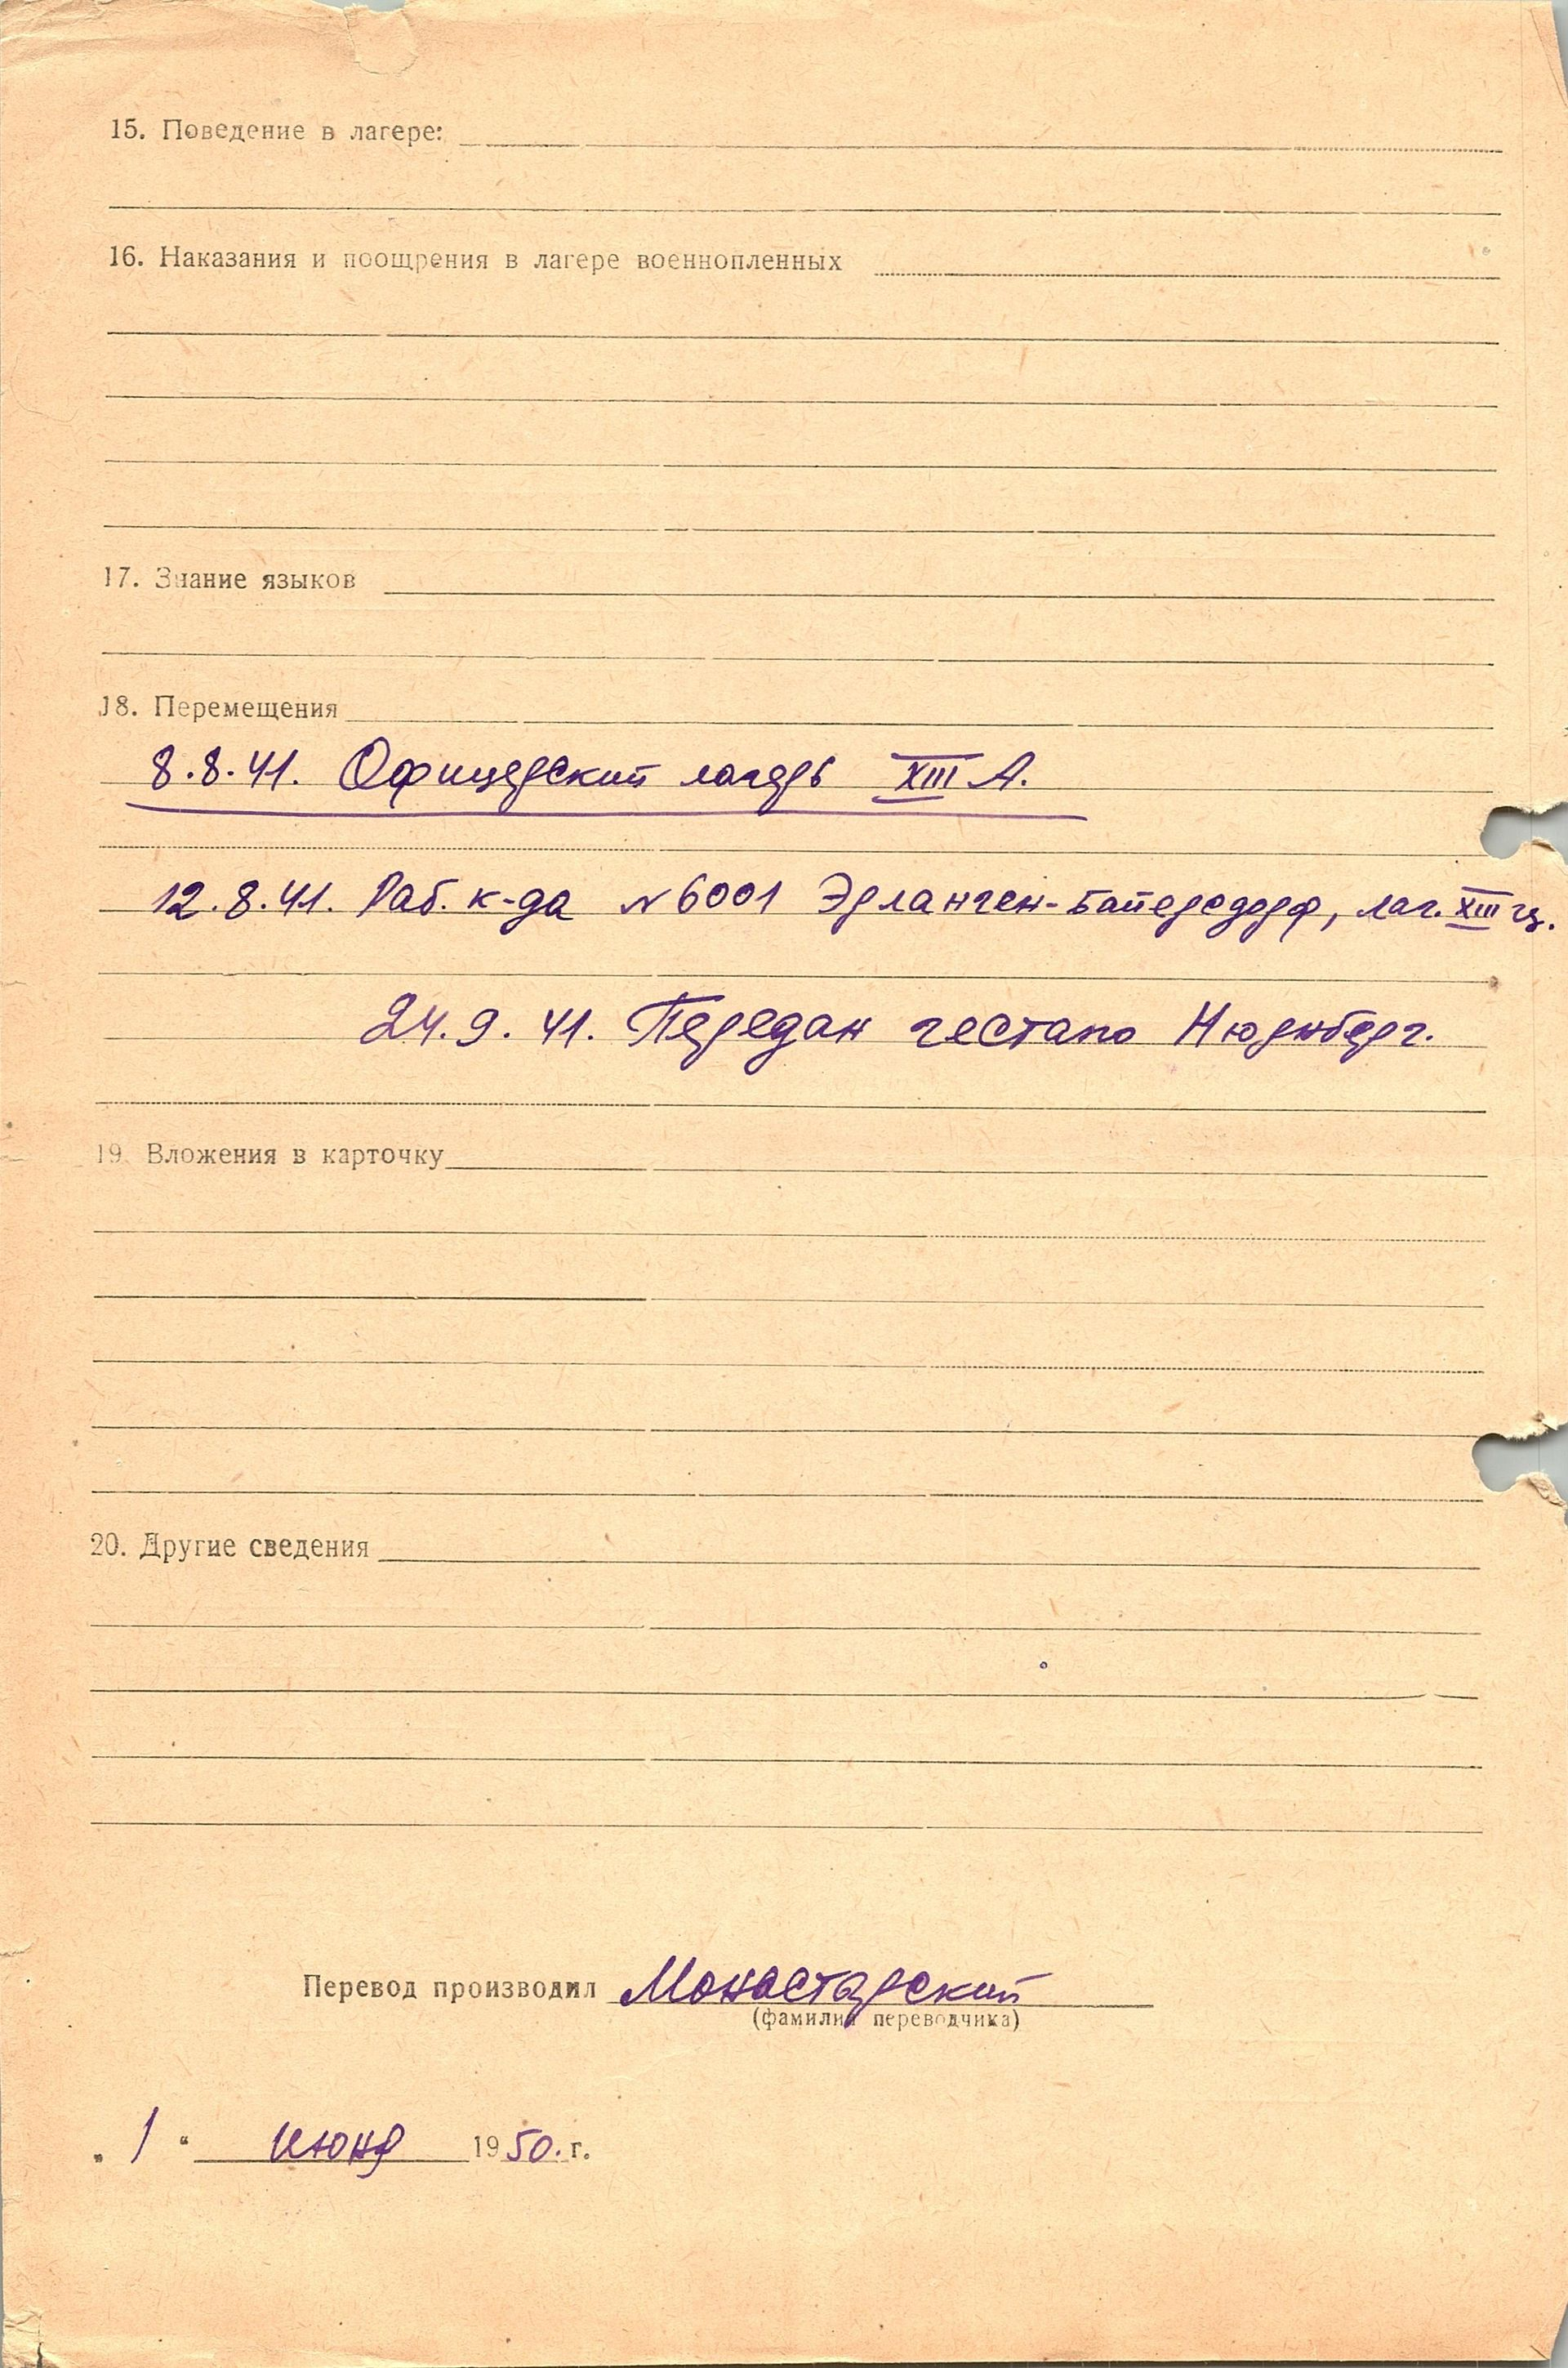 15. Поведение в лагере:
16. Наказания и поощрения в лагере военнопленных
17. Знание языков
18. Перемещения
8.8.41. Офицерский лагерь XIII А.
12.8.41. Раб. к-да №6001 Эрланген-Байерсдорф, лаг. XIII ц.
24.9.41. Передан гестапо Нюрнберг.
19. Вложения в карточку
20. Другие сведения
Перевод производил Монастярский
(фамилия переводчика)
„ 1 “ июня 1950. г.